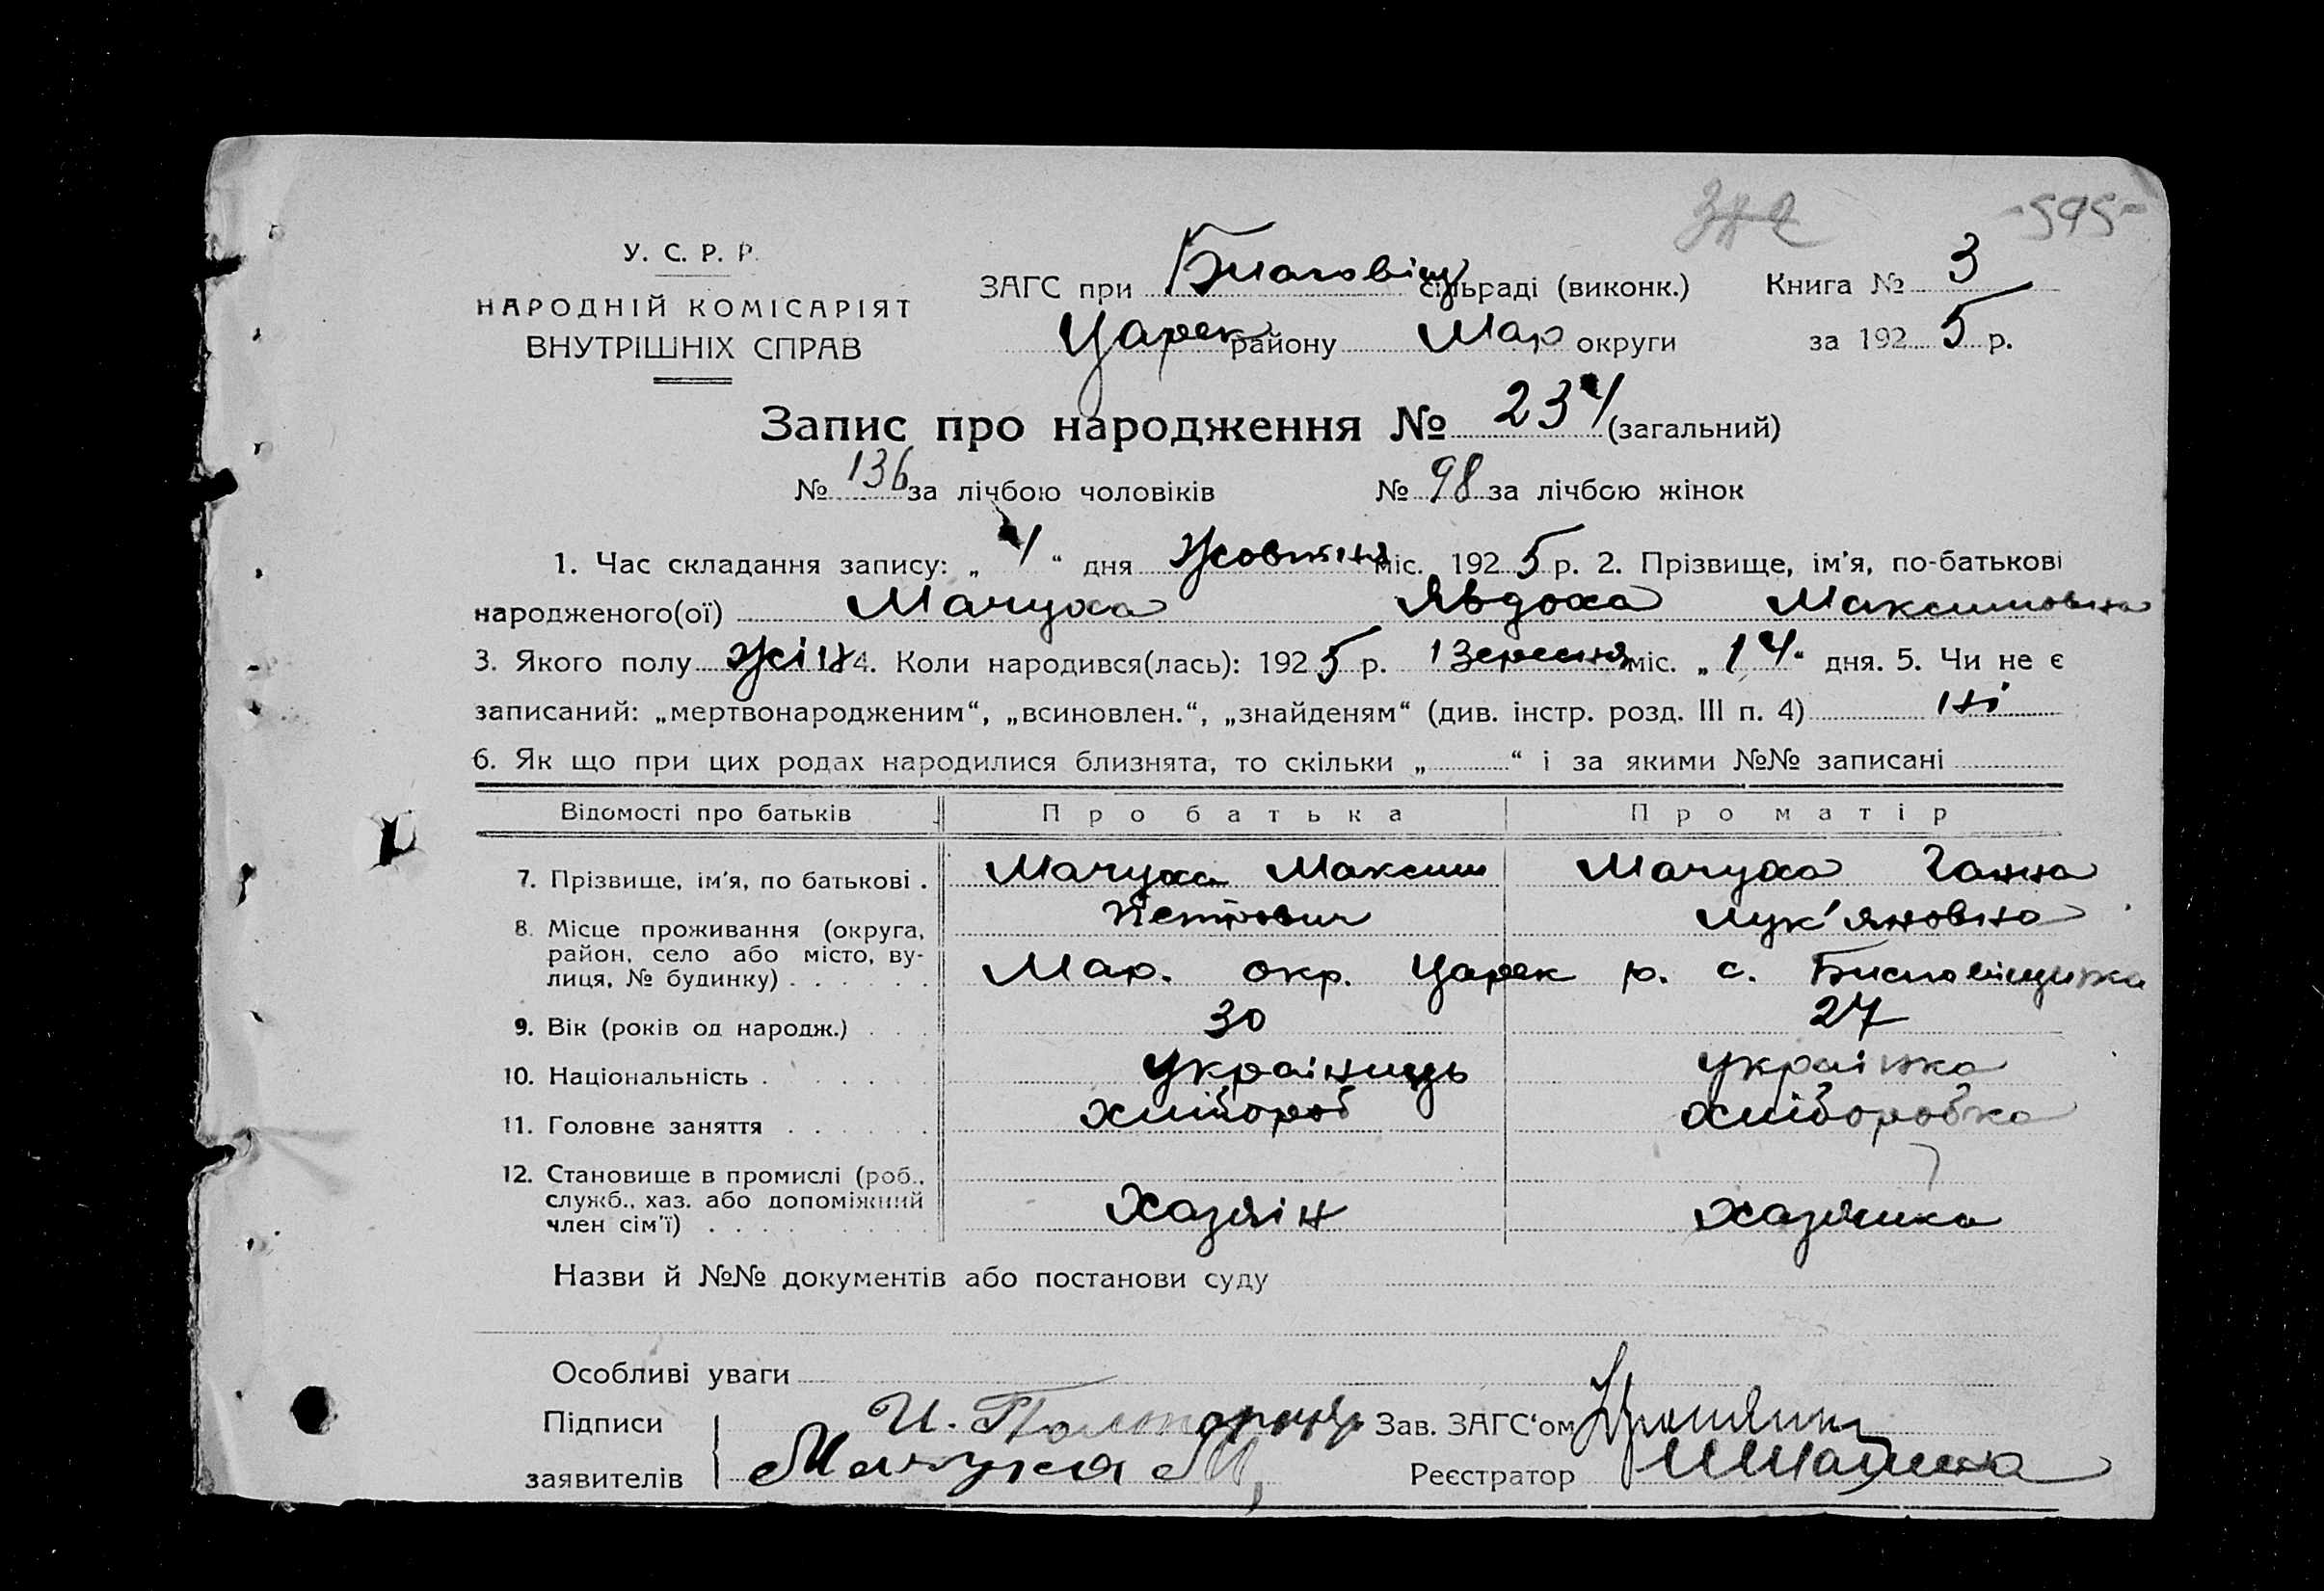 -595-
У. С. Р. Р.
НАРОДНІЙ КОМІСАРІЯТ
ВНУТРІШНІХ СПРАВ
ЗАГС при Благовіщ сільраді (виконк.) Книга № 3
Царек району Мар округи за 1925 р.
Запис про народження № 234 (загальний)
№ 136 за лічбою чоловіків № 98 за лічбою жінок
1. Час складання запису: „ 4 “ дня Жовтня міс. 1925 р. 2. Прізвище, ім'я, по-батькові
народженого(ої) Мачуха Явдоха Максимовна
3. Якого полу жін 4. Коли народився(лась): 1925 р. Вересня міс. „ 14 “ дня. 5. Чи не є
записаний: „мертвонародженим“, „всиновлен.“, „знайденям“ (див. інстр. розд. III п. 4) ні
6. Як що при цих родах народилися близнята, то скільки „ “ і за якими №№ записані
Відомості про батьків Про батька Про матір
7. Прізвище, ім'я, по батькові . Мачуха Максим Петрович Мачуха Ганна Лук'яновна
8. Місце проживання (округа, район, село або місто, вулиця, № будинку) Мар. окр. Царек р. с.
9. Вік (років од народж.) 30 27
10. Національність Україниць українка
11. Головне заняття хлібороб хліборобка
12. Становище в промислі (роб., служб., хаз. або допоміжний член сім'ї) Хазяін хазяика
Назви й №№ документів або постанови суду
Особливі уваги
Підписи И. Зав. ЗАГС'ом
заявителів Мачуха М, Реєстратор